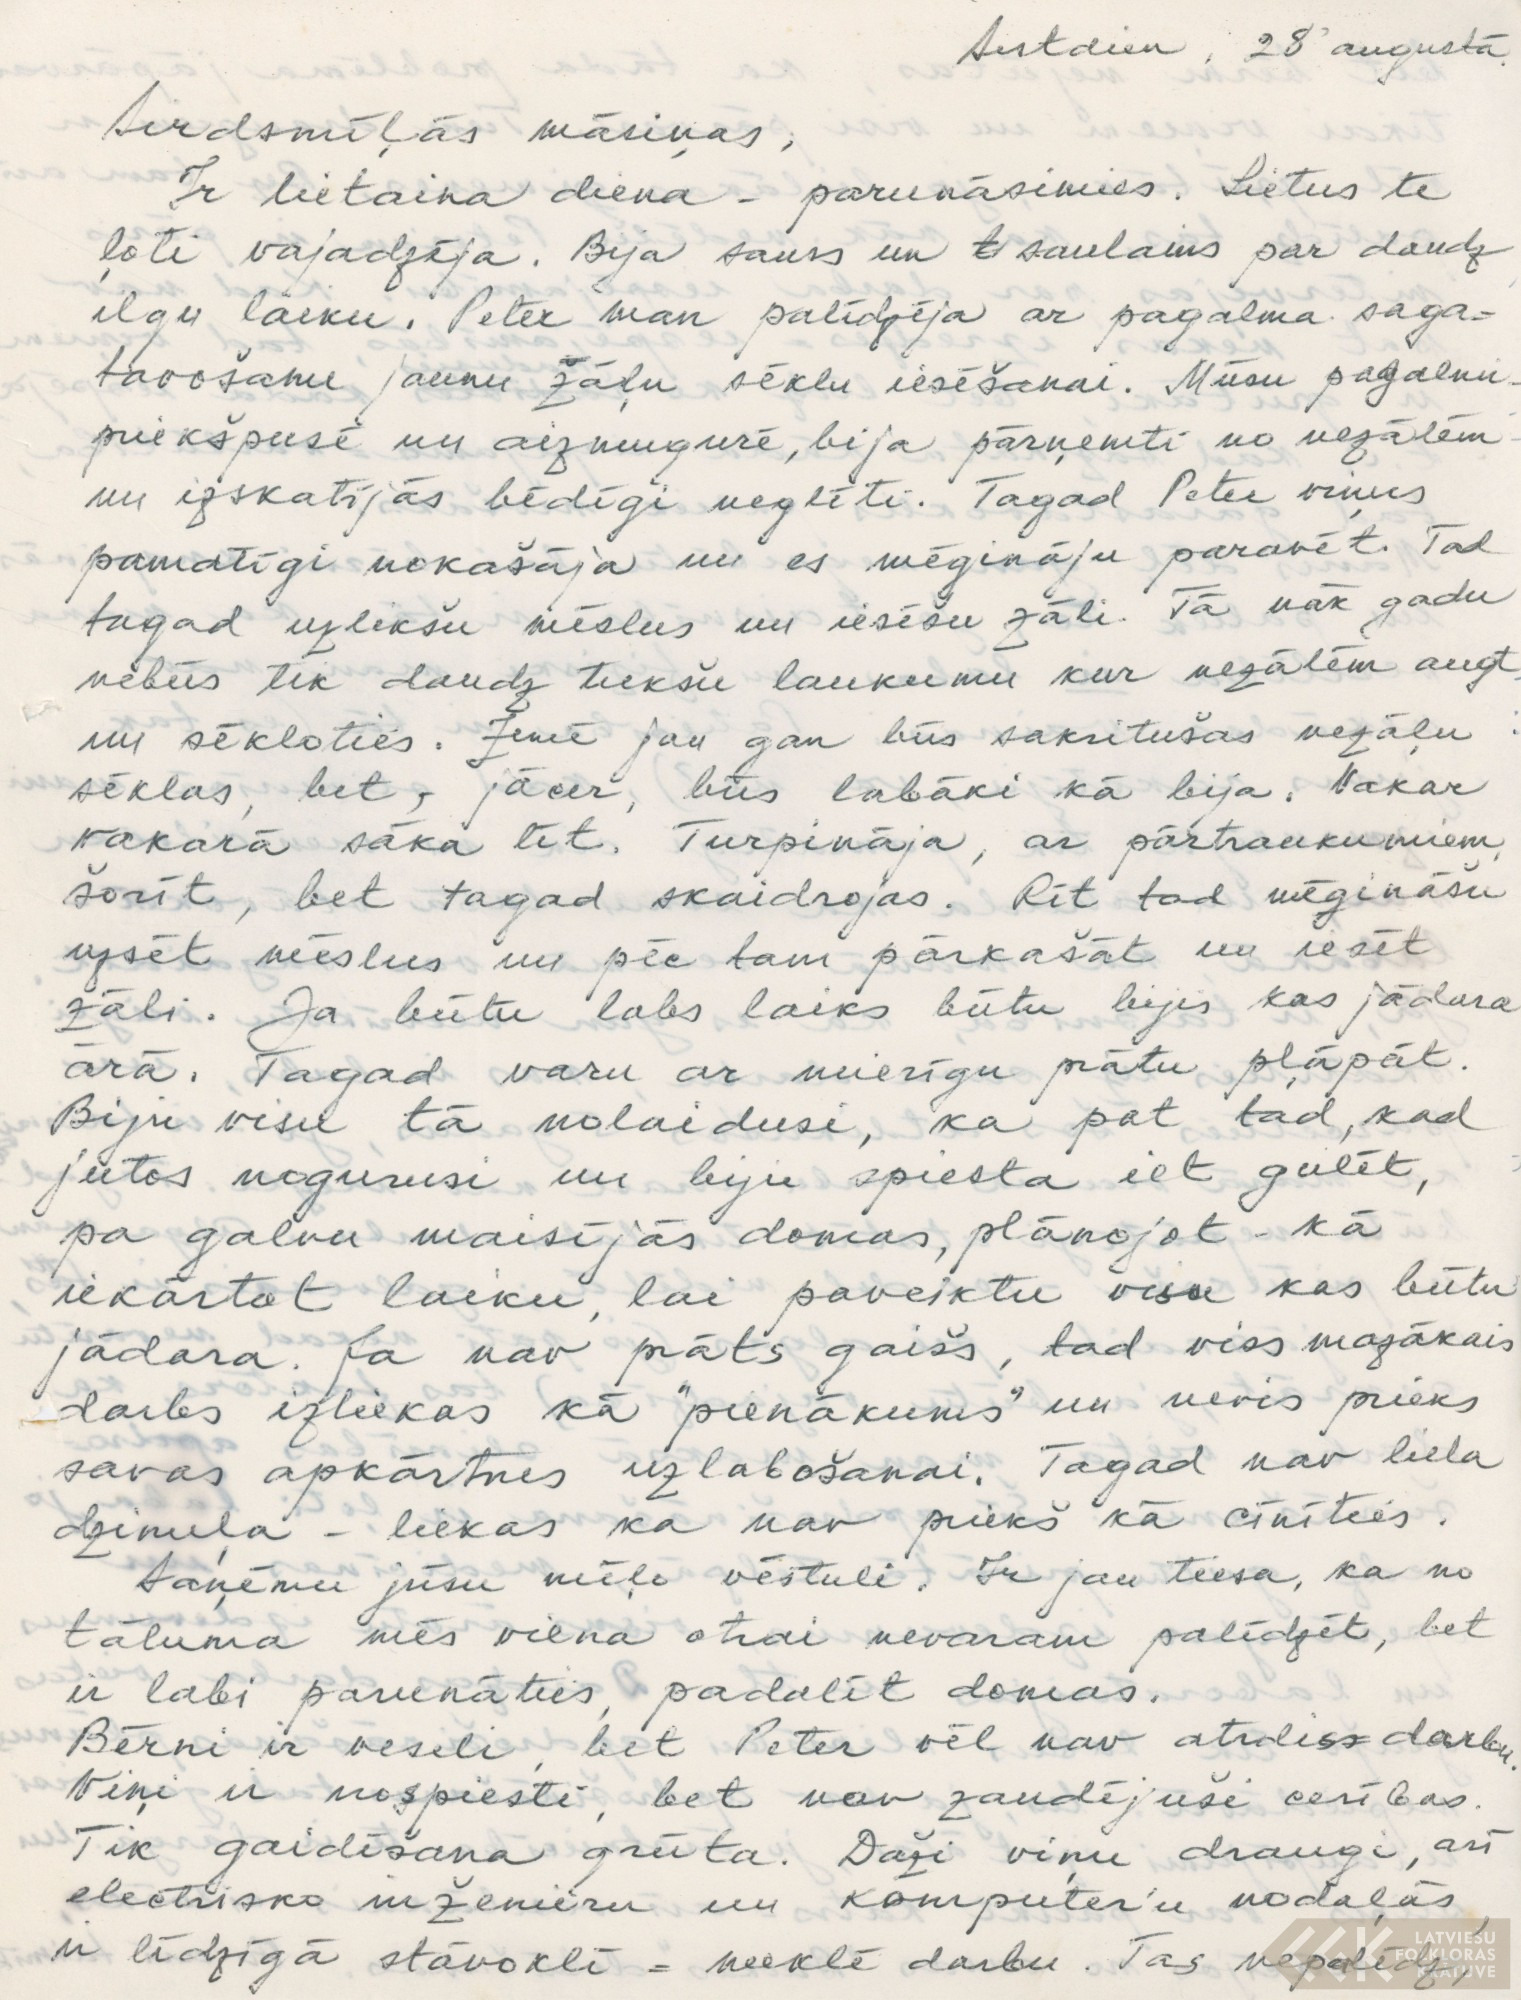 Sestdien, 28 augustā.
Sirdsmīļās māsiņas,
Ir lietaina diena - parunāsimies. Lietus te
ļoti vajadzēja. Bija sauss un saulains par daudz
ilgu laiku. Peter man palīdzēja ar pagalma saga-
tavošanu jaunu žāļu sēklu iesēšanai. Mūsu pagalmi
priekšpusē un aizmugurē, bija pārņemti no nezālēm
un izskatījās bēdīgi neglīti. Tagad Peter viņus
pamatīgi nokašāja un es mēgināju paravēt. Tad
tagad uzlikšu mēslus un iesēšu zāli. Tā nāk gadu
nebūs tik daudz tukšu laukumu kur nezālēm augt
un sēkloties. Zemē jau gan būs sakritušas nezāļu
sēklas, bet, jācer, būs labāki kā bija. Vakar
vakarā sāka līt. Turpināja, ar pārtraukumiem,
šorīt, bet tagad skaidrojas. Rīt tad mēgināšu
uzsēt mēslus un pēc tam pārkašāt un iesēt
zāli. Ja būtu labs laiks būtu bijis kas jādara
ārā. Tagad varu ar mierīgu prātu pļāpāt.
Biju visu tā nolaidusi, ka pat tad, kad
jūtos nogurusi un biju spiesta iet gulēt,
pa galvu maisījās domas, plānojot - kā
iekārtot laiku, lai paveiktu visu kas būtu
jādara. Ja nav prāts gaišs, tad viss mazākais
darbs izliekas kā "pienākums" un nevis prieks
savas apkārtnes uzlabošanai. Tagad nav liela
dzinuļa - liekas ka nav priekš kā cīnīties.
Saņēmu jūsu mīļo vēstuli. Ir jau tiesa, ka no
tāluma mēs viena otrai nevaram palīdzēt, bet
ir labi parunāties, padalīt domas.
Bērni ir veseli, bet Peter vēl nav atradis darbu.
Viņi ir nospiesti, bet nav zaudējuši cerības.
Tik gaidīšana grūta. Daži viņu draugi, arī
electrisko inženieru un komputer'u nodaļās,
ir līdzīgā stāvoklī = meklē darbu. Tas nepalīdz,
LATVIEŠU
FOLKLORAS
KRĀTUVE